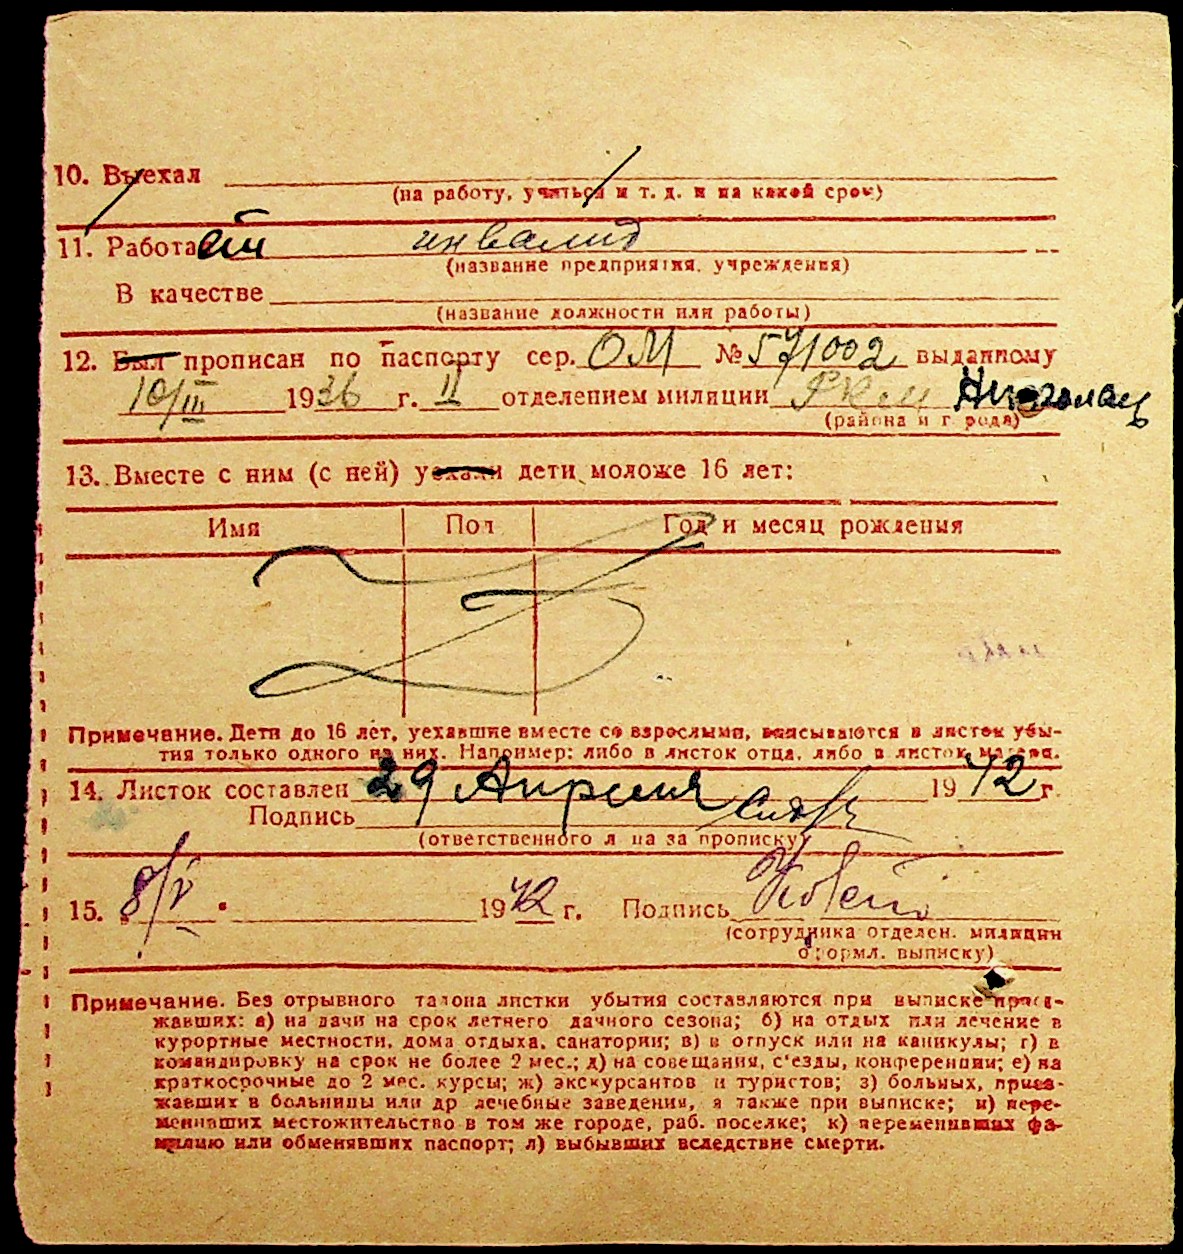 10. Выехал
(на работу, учиться и т. д. и на какой срок)
11. Работает инвалид
(название предприятия, учреждения)
В качестве
(название должности или работы)
12. Был прописан по паспорту сер. ОМ № 571002 выданному
10/III 1936 г. II отделением милиции РКМ
(района и города)
13. Вместе с ним (с ней) уехали дети моложе 16 лет:
Имя Пол Год и месяц рождения
Примечание. Дети до 16 лет, уехавшие вместе со взрослыми, вписываются в листок убы-
тия только одного из них. Например: либо в листок отца, либо в листок матери.
14. Листок составлен 29 Апреля 1942 г.
Подпись
(ответственного лица за прописку)
15. „8/V" 1942 г. Подпись
(сотрудника отделен. милиции
оформл. выписку)
Примечание. Без отрывного талона листки убытия составляются при выписке приез-
жавших: а) на дачи на срок летнего дачного сезона; б) на отдых или лечение в
курортные местности, дома отдыха, санатории; в) в отпуск или на каникулы; г) в
командировку на срок не более 2 мес.; д) на совещания, с'езды, конференции; е) на
краткосрочные до 2 мес. курсы; ж) экскурсантов и туристов; з) больных, приез-
жавших в больницы или др лечебные заведения, а также при выписке; и) пере-
менивших местожительство в том же городе, раб. поселке; к) переменивших фа-
милию или обменявших паспорт; л) выбывших вследствие смерти.